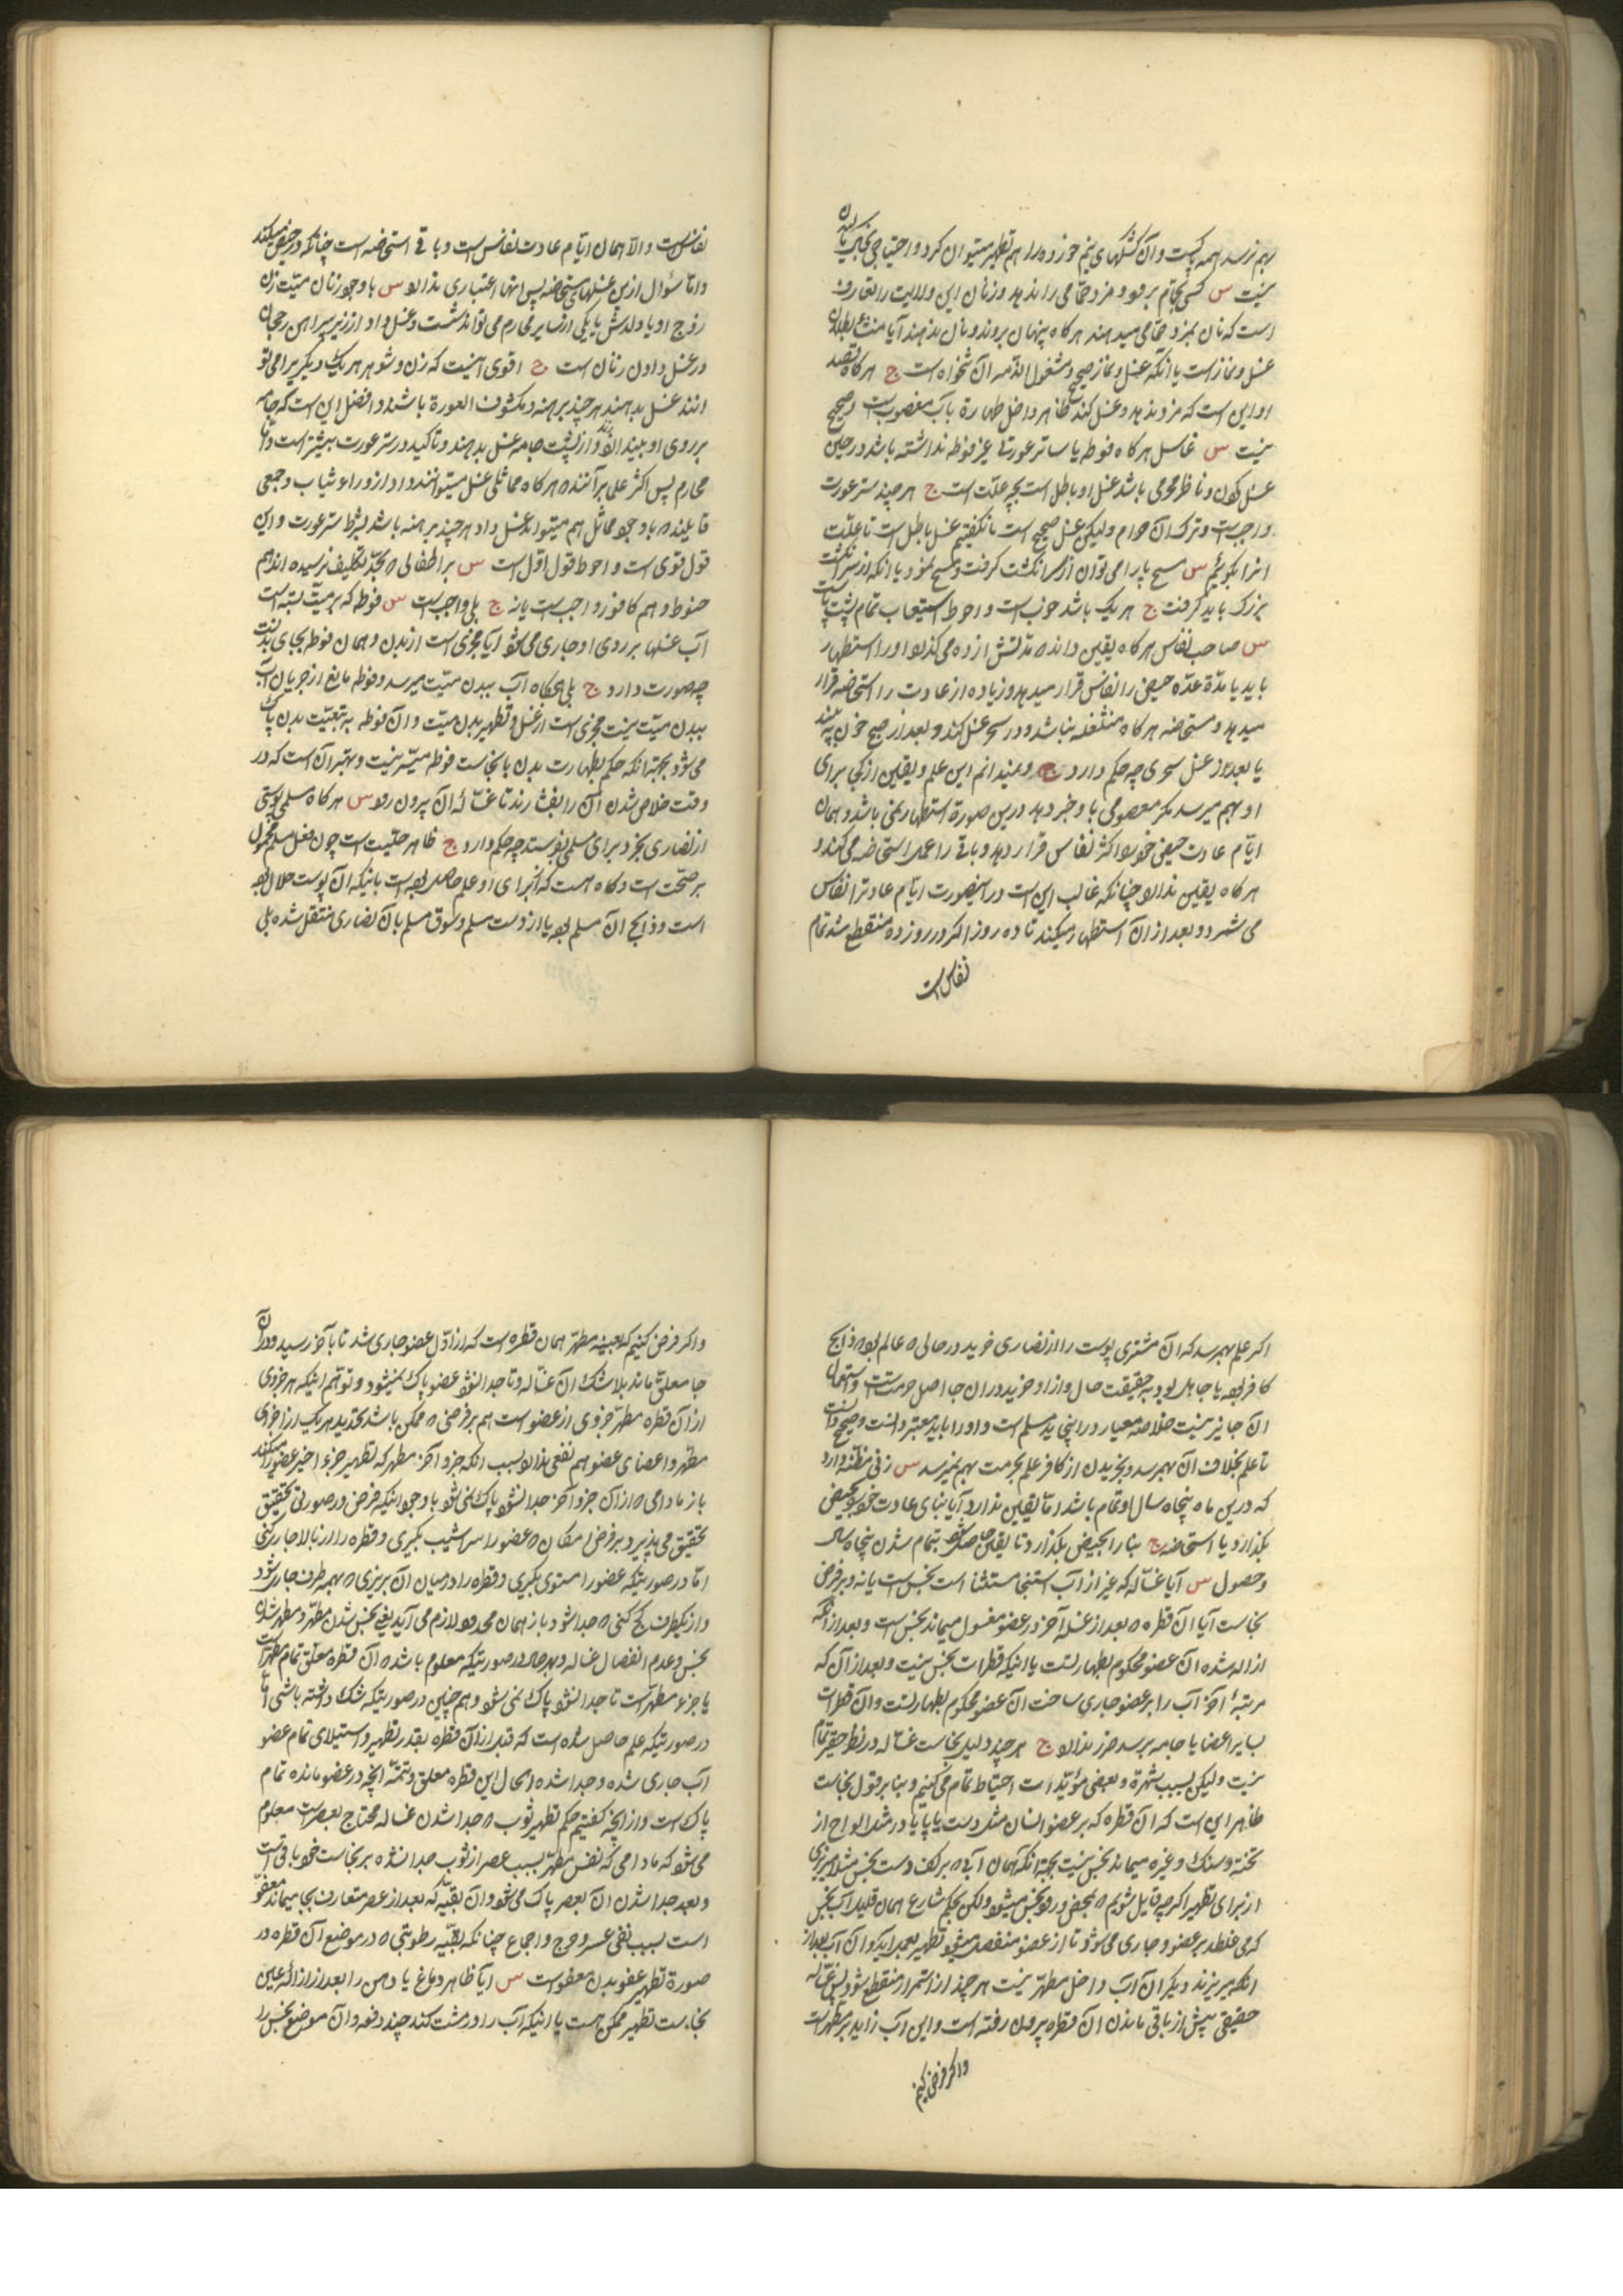 بهم نرسد همه پاکست و آن کشکهای نیم خورده را هم تطهیر میتوان کرد و احتیاجی بخاکریز بآن
نیست س کسی بحمام برود و مزد حمامی را ندهد و زنان این ولایت را تعارف
است که نان بمزد حمامی میدهند هر کاه پنهان بروند و نان ندهند آیا منشاء بطلان
غسل و نماز است یا آنکه غسل و نماز صحیح و مشغول الذمه آن تنخواه است ج هر کاه قصد
او این است که مزد ندهد و غسل کند ظاهر داخل طهارة بآب مغصوب است و صحیح
نیست س غاسل هر کاه فوطه یا ساتر عورتی غیر فوطه نداشته باشد در حین
غسل کردن و ناظر محرمی باشد غسل او باطل است بچه علّت است ج هر چند ستر عورت
واجبست و ترک آن حرام ولیکن غسل صحیح است ما نگفتیم غسل باطل است تا علّت
انرا بگوئیم س مسح پا را می توان از سر انکشت کرفت و مسح نمود یا آنکه از سر انکشت
بزرک باید کرفت ج هر یک باشد خوبست و احوط استیعاب تمام پشت پاست
س صاحب نفاس هر کاه یقین داند که مدّتش از ده می کذرد او را استظهار
باید یا مدّة عدّه حیض را نفاس قرار میدهد و زیاده از عادت را استحاضه قرار
میدهد و مستحاضه هر کاه منثقفه نباشد و در سحر غسل کند و بعد از صبح خون بیند
یا بعد از غسل سحری چه حکم دارد ج نمیدانم این علم و یقین از کجا برای
او بهم میرسد مکر معصومی باو خبر دهد درین صورة استظهار نمی باشد و همان
ایّام عادت حیض خود را اکثر نفاس قرار دهد و باقی را عمل استحاضه می کند و
هر کاه یقین ندارد چنانکه غالب این است در اینصورت ایّام عادترا نفاس
می شمرد و بعد از آن استظهار میکند تا ده روز اکر در روز ده منقطع شد تمام
نفاس است
نفاس است والّا همان ایّام عادت نفاس است و باقی استحاضه است چنانکه در حیض میکند
و امّا سؤال ازین غسلهای مستحاضه پس انها اعتباری ندارد س با وجود زنان میّت زن
زوج او یا ولدش یا یکی از سایر محارم می تواند شست و غسل داد از زیر پیراهن رجحان
در غسل دادن زنان است ج اقوی اینست که زن و شوهر هر یک دیکریرا می تو
انند غسل بدهند هر چند برهنه و مکشوف العورة باشند و افضل این است که جامه
بر روی او بیندازند و از پشت جامه غسل بدهند و تاکید در ستر عورت بیشتر است و امّا
محارم پس اکثر علما بر آنند که هر کاه مماثلی غسل میتوانند داد از وراء ثیاب و جمعی
قایلند که با وجود مماثل هم میتواند غسل داد هر چند برهنه باشد بشرط ستر عورت و این
قول قوی است و احوط قول اوّل است س بر اطفالی که بحدّ تکلیف نرسیده اند هم
حنوط و هم کافور واجبست یا نه ج بلی واجبست س فوطه که بر میّت بسته است
آب غسلها بر روی او جاری می شود آیا مجزی است از بدن و همان فوطه بجای بدنست
چه صورت دارد ج بلی هرکاه آب ببدن میّت میرسد و فوطه مانع از جریان آب
ببدن میّت نیست مجزی است از غسل و تطهیر بدن میّت و آن فوطه به تبعیّت بدن پاک
می شود بجهة انکه حکم بطهارت بدن با نجاست فوطه میسّر نیست و بهتر آن است که در
وقت خلاص شدن آن را بفشارند تا غسّالهٔ آن بیرون رود س هر کاه مسلمی پوستی
از نصاری بخرد و برای مسلمی بفرستد چه حکم دارد ج ظاهر حلّیت است چون فعل مسلم محمول
بر صحّت است و کاه هست که از برای او علم حاصل بوده است باینکه ان پوست حلال بوده
است و ذابح ان مسلم بوده یا از دست مسلم و سوق مسلم بان نصاری منتقل شده بلی
اکر علم بهمرسد که آن مشتری پوست را از نصاری خرید در حالی که عالم بوده که ذابح
کافر بوده یا جاهل بود به حقیقت حال و از او خرید در ان جا اصل حرمتست و استعمال
ان جایز نیست خلاصه معیار در اینجا ید مسلم است و او را باید معتبر دانست و صحیح دانست
تا علم بخلاف آن بهمرسد و بخریدن از کافر علم بحرمت بهم نمیرسد س زنی مظنّه دارد
که درین ماه پنجاه سال او تمام باشد امّا یقین ندارد آیا بنای عادت خود بر حیض
بکذارد یا استحاضه ج بنا را بحیض بکذارد تا یقین حاصل شود بتمام شدن پنجاه سال
و حصول س آیا غسّاله که غیر از آب استنجا مستثنا است نجس است یا نه و بر فرض
نجاست آیا آن قطره که بعد از غسله آخر در عضو مغسول میماند نجس است و بعد از آنکه
ازاله شده آن عضو محکوم بطهارتست یا اینکه قطرات نجس نیست و بعد از آن که
مرتبهٔ آخر آب را بر عضو جاری ساخت ان عضو محکوم بطهارتست و آن قطرات
بسایر اعضا یا جامه برسد ضرر ندارد ج هر چند دلیل نجاست غسّاله در نظر حقیر تمام
نیست ولیکن بسبب شهرة و بعضی مؤیّدات احتیاط تمام می کنیم و بنا بر قول نجاست
ظاهر این است که ان قطره که بر عضو انسان مثل دست یا پا یا در مثل الواح از
تخته و سنک و غیره میماند نجس نیست بجهة انکه همان آبی که بر کف دست نجس مثلا میریزی
از برای تطهیر اکر چه قایل شویم که بمحض ورود نجس میشود ولکن بحکم شارع همان قلیل آب نجس
که می غلطد بر عضو و جاری می شود تا از عضو منفصل میشود تطهیر بعمل اید و آن آب بعد از
انکه بریزند دیکر آن آب داخل مطهّر نیست هر چند از استمرار منقطع شود پس غسّاله
حقیقی پیش از باقی ماندن ان قطره بیرون رفته است و این آب زاید بر مطهّر است
و اکر فرض کنیم
و اکر فرض کنیم که بعینه مطهّر همان قطره است که از اوّل عضو جاری شد تا بآخر رسید و در آن
جا معلّق ماند بلا شک ان غسّاله و تا جدا نشود عضو پاک نمیشود و توهّم اینکه هر جزوی
از آن قطره مطهّر جزوی از عضو است هم بر فرضی که ممکن باشد تحدید هر یک از اجزای
مطهّر و اعضای عضو هم نفعی ندارد بسبب انکه جزو آخر مطهر که تطهیر جزء اخیر عضو را میکند
باز مادامی که از آن جزو آخر جدا نشود پاک نمی شود با وجود اینکه فرض در صورتی تحقیق
تحقیق می پذیرد بر فرض امکان که عضو را سراشیب بکیری و قطره را از بالا جاری کنی
امّا در صورتیکه عضو را مستوی بکیری و قطره را در میان آن بریزی که بهمه طرف جاری شود
و از یکطرف کج کنی که جدا شود باز همان محذور لازم می آید یعنی نجس شدن مطهّر و مطهر شدن
نجس و عدم انفصال غساله و بهر حال در صورتیکه معلوم باشد که آن قطره معلّق تمام مطهّر است
یا جزء مطهّر است تا جدا نشود پاک نمی شود و هم چنین در صورتیکه شک داشته باشی امّا
در صورتیکه علم حاصل شده است که قبل از آن قطره بقدر تطهیر و استیلای تمام عضو
آب جاری شده و جدا شده الحال این قطره معلّق و تتمّه انچه در عضو مانده تمام
پاک است و از انچه کفتیم حکم تطهیر ثوب که جدا شدن غساله محتاج بعصر است معلوم
می شود که مادامی که نفس مطهّر بسبب عصر از ثوب جدا نشده بر نجاست خود باقی است
و بعد جدا شدن ان بعصر پاک می شود و آن بقیّه که بعد از عصر متعارف بجا میماند معفوّ
است بسبب نفی عسر و حرج و اجماع چنانکه بقیّه رطوبتی که در موضع آن قطره در
صورة تطهیر عضو بدن معفو است س آیا ظاهر دماغ یا دهن را بعد از ازالهٔ عین
نجاست تطهیر ممکن هست یا اینکه آب را در مشت کند چند دفعه و آن موضع نجس را